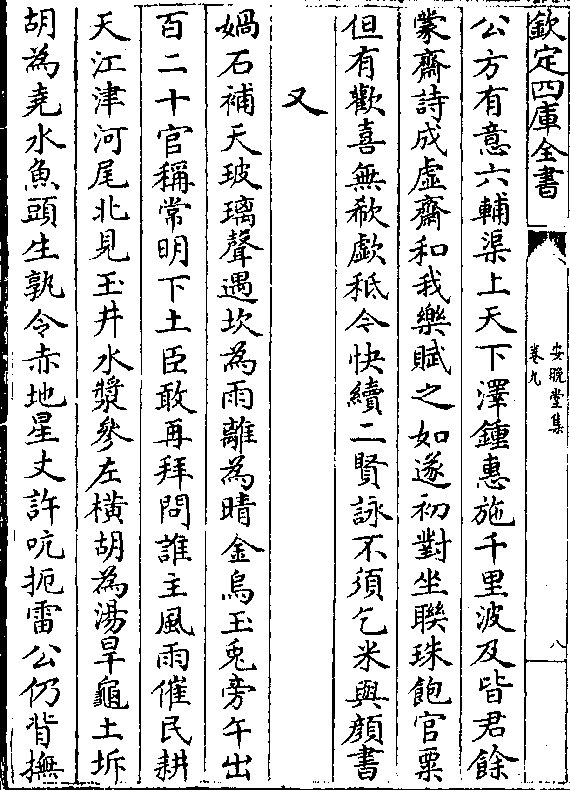 欽定四庫全書
安晚堂集
卷九
八
公方有意六輔渠上天下澤鍾惠施千里波及皆君餘
蒙齋詩成虛齋和我樂賦之如遂初對坐聯珠飽官粟
但有歡喜無欷歔秪今快續二賢詠不須乞米與顔書
又
媧石補天玻璃聲遇坎為雨離為晴金烏玉兎旁午出
百二十官稱常明下土臣敢再拜問誰主風雨催民耕
天江津河尾北見玉井水漿參左橫胡為湯旱龜土坼
胡為堯水魚頭生孰令赤地星丈許吭扼雷公仍背撫